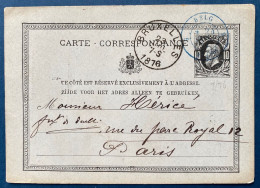 BELG
CARTE - CORRESPONDANCE
BRUXELLES
1876
CE CÔTÉ EST RÉSERVÉ EXCLUSIVEMENT À L'ADRESSE.
ZIJDE VOOR HET ADRES ALLEEN TE GEBRUIKEN.
Monsieur Hérice
rue du parc Royal 12
Paris